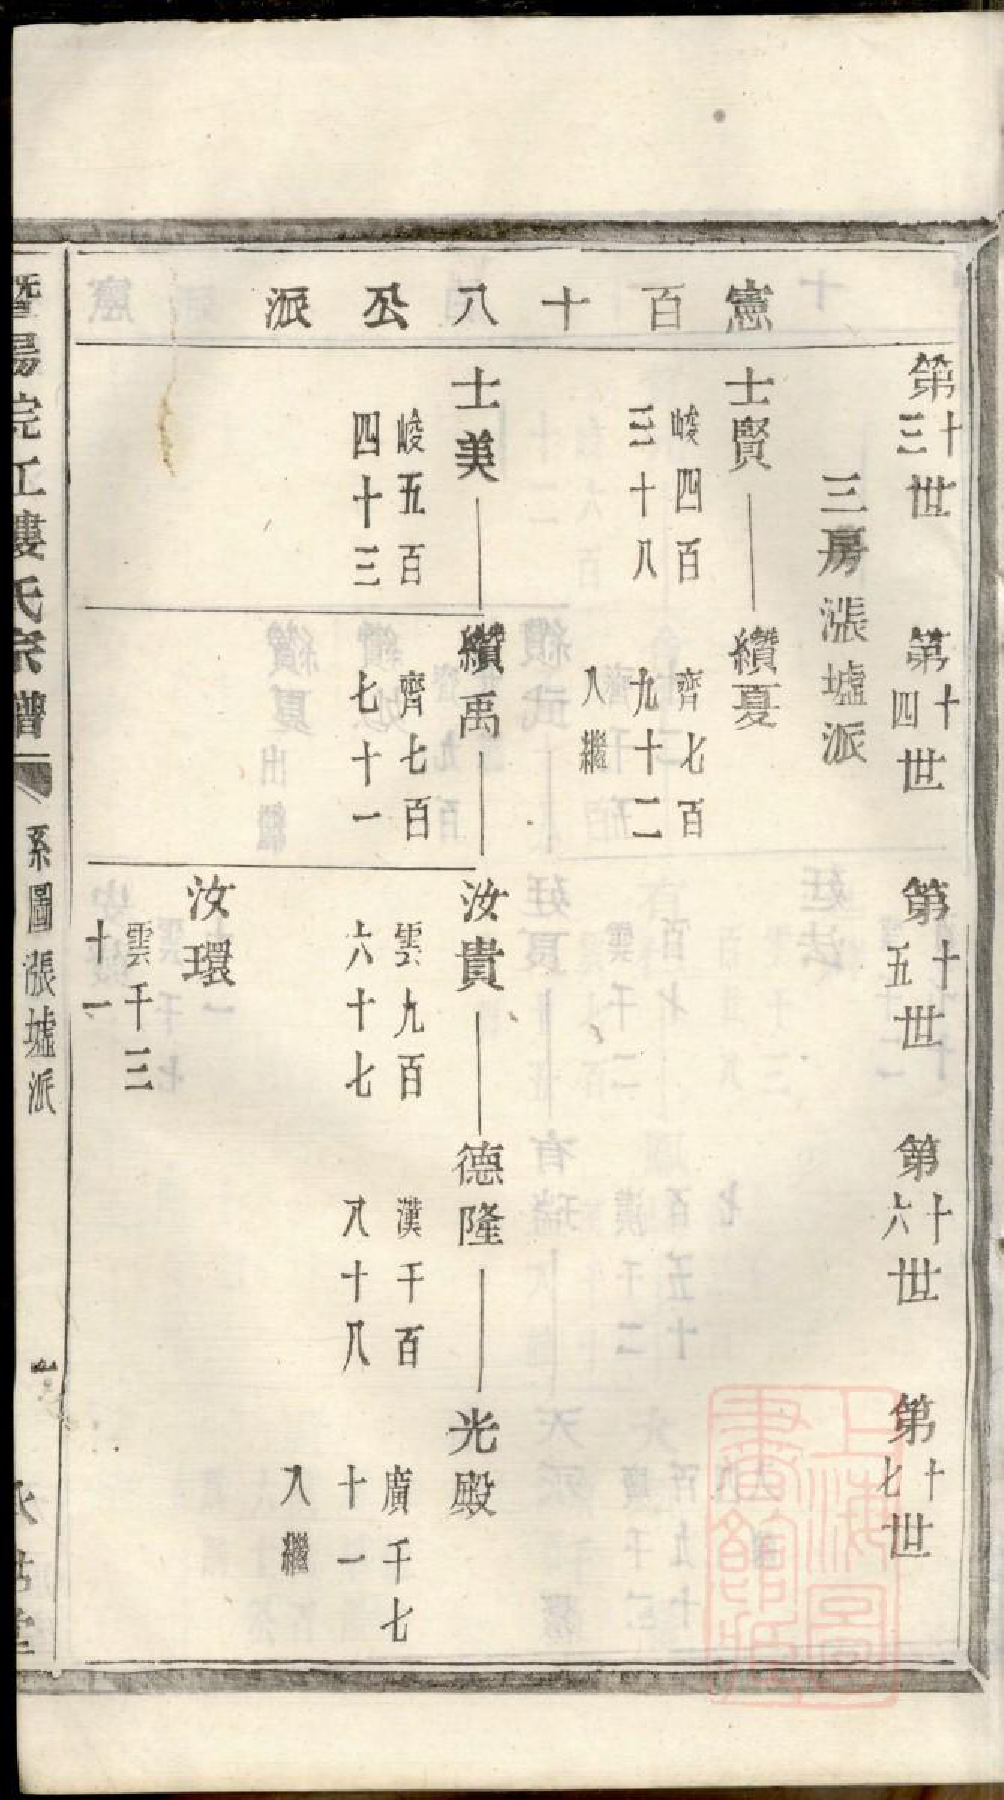 憲百十八公派
第十三世
第十四世
第十五世
第十六世
第十七世
三房漲墟派
士賢
峻四百
三十八
纘夏
齊七百
九十二
入繼
士美
峻五百
四十三
纘禹
齊七百
七十一
汝貴
雲九百
六十七
德隆
漢千百
八十八
光殿
廣千七
十一
入繼
汝環
雲千三
十一
暨陽浣江婁氏宗譜
系圖 漲墟派
上海圖書館藏